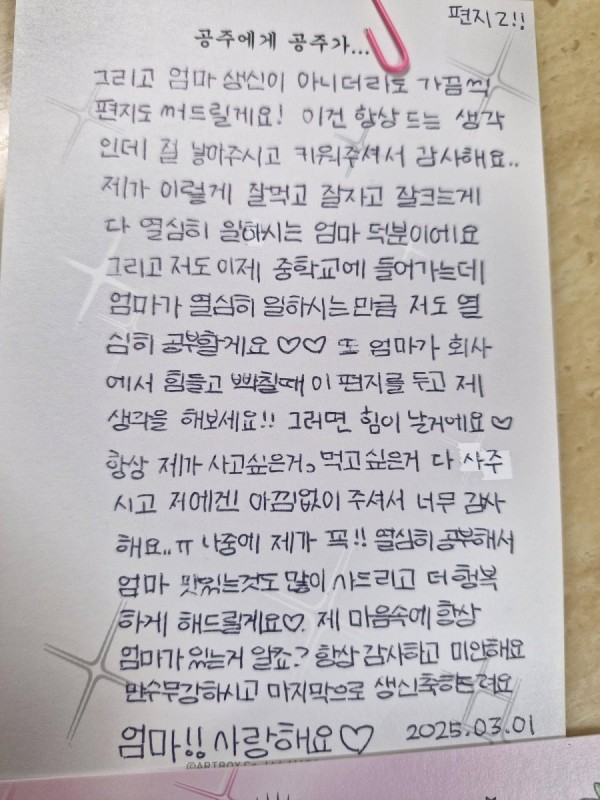 편지 2!!
공주에게 공주가...
그리고 엄마 생신이 아니더라도 가끔씩
편지도 써드릴게요! 이건 항상 드는 생각
인데 절 낳아주시고 키워주셔서 감사해요..
제가 이렇게 잘먹고 잘자고 잘크는게
다 열심히 일하시는 엄마 덕분이에요
그리고 저도 이제 중학교에 들어가는데
엄마가 열심히 일하시는만큼 저도 열
심히 공부할게요 ♡♡ 또 엄마가 회사
에서 힘들고 빡칠때 이 편지를 두고 제
생각을 해보세요!! 그러면 힘이 날거에요♡
항상 제가 사고싶은거, 먹고싶은거 다 사주
시고 저에겐! 아낌없이 주셔서 너무 감사
해요..ㅠ 나중에 제가 꼭!! 열심히 공부해서
엄마 맛있는것도 많이 사드리고 더 행복
하게 해드릴게요♡. 제 마음속에 항상
엄마가 있는거 알죠? 항상 감사하고 미안해요
만수무강하시고 마지막으로 생신축하드려요
엄마!! 사랑해요♡ 2025.03.01